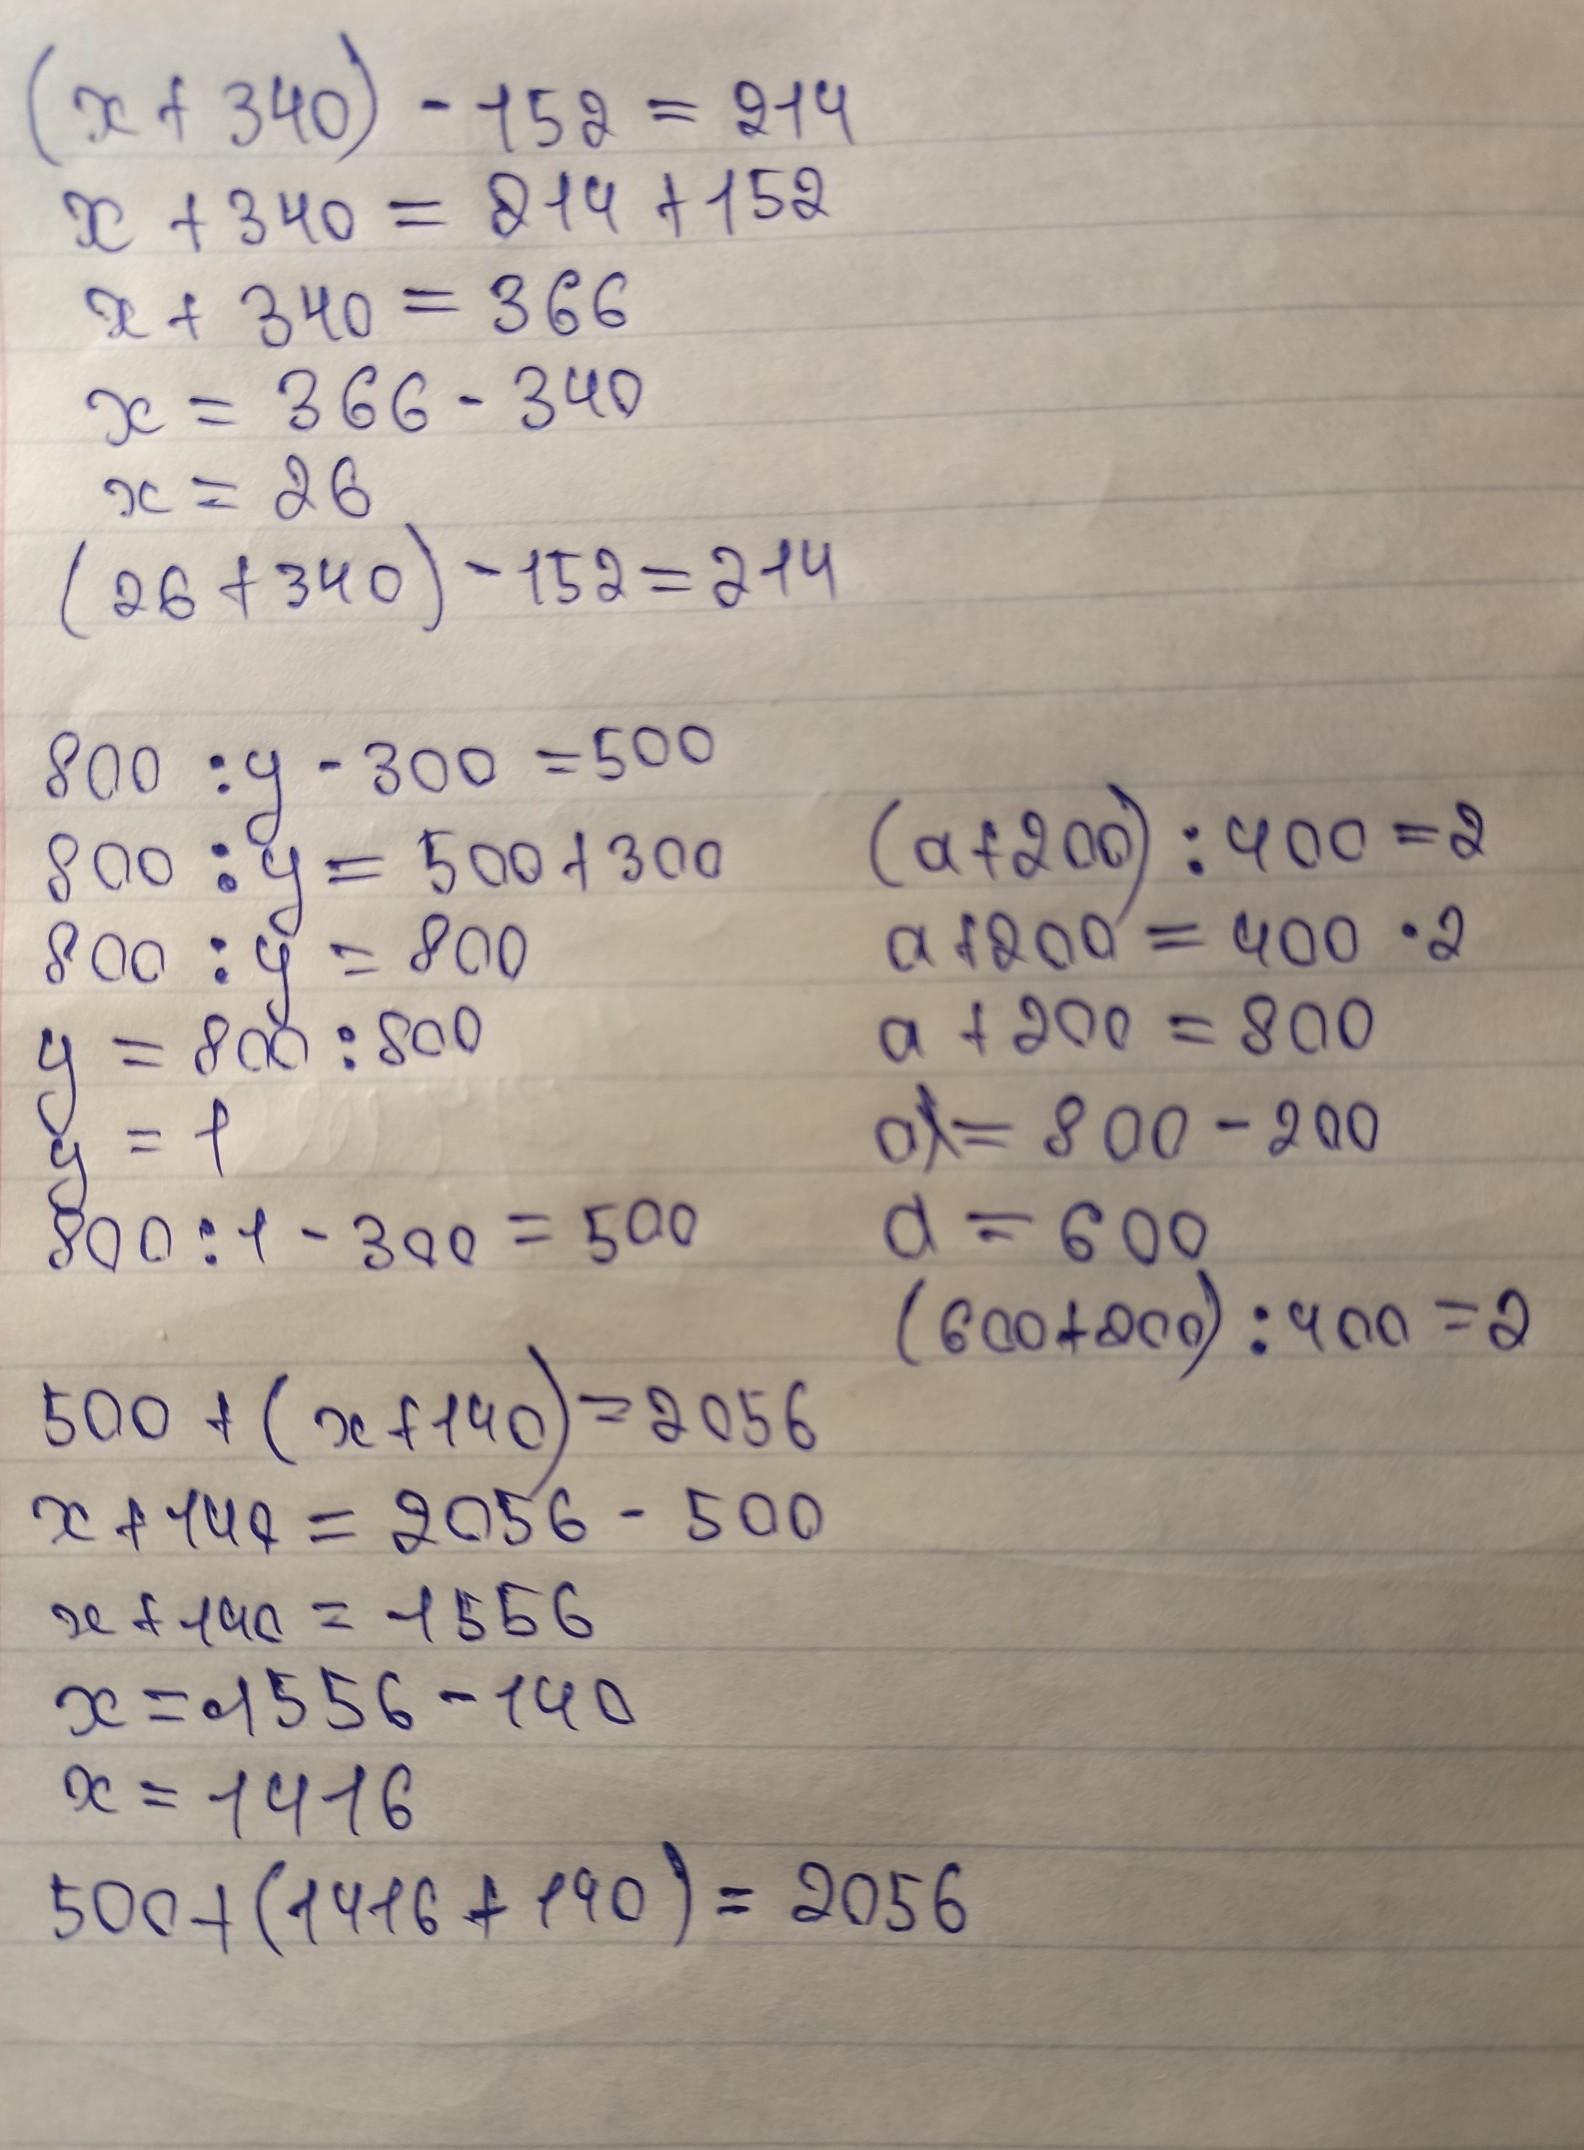 (x + 340) - 152 = 214
x + 340 = 214 + 152
x + 340 = 366
x = 366 - 340
x = 26
(26 + 340) - 152 = 214
800 : y - 300 = 500
800 : y = 500 + 300
800 : y = 800
y = 800 : 800
y = 1
800 : 1 - 300 = 500
(a + 200) : 400 = 2
a + 200 = 400 · 2
a + 200 = 800
a = 800 - 200
a = 600
(600 + 200) : 400 = 2
500 + (x + 140) = 2056
x + 140 = 2056 - 500
x + 140 = 1556
x = 1556 - 140
x = 1416
500 + (1416 + 140) = 2056